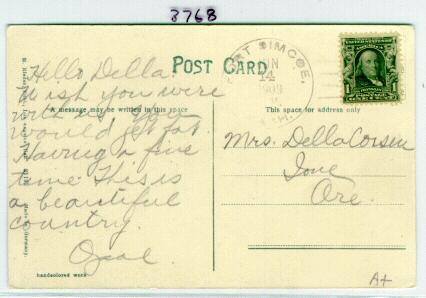 3768
POST CARD
FORT SIMCOE,
JUN
14
1909
WASH.
A message may be written in this space
This space for address only
Hello Della!
Wish you were
with us. You
would get fat.
Having a fine
time. This is
a beautiful
country.
Opal.
Mrs. Della Corsin
Ione
Ore.
handcolored work
Made in Germany.
A+